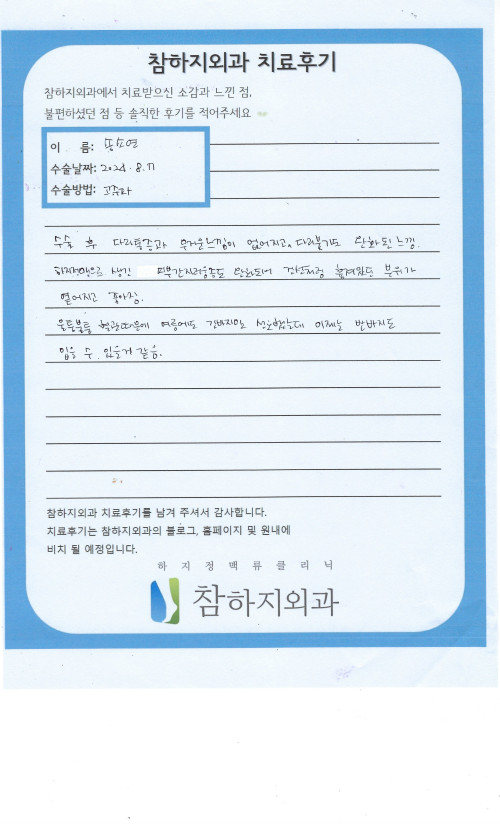 참하지외과 치료후기
참하지외과에서 치료받으신 소감과 느낀 점,
불편하셨던 점 등 솔직한 후기를 적어주세요
이 름: 소연
수술날짜: 2021. 8. 11
수술방법: 고주파
수술 후 다리통증과 무거운느낌이 없어지고, 다리붓기도 완화된 느낌.
하지정맥으로 생긴 피부간지러움증도 완화되어 부위가
옅어지고 좋아짐.
울퉁불퉁 혈관때문에 여름에도 긴바지만 이제는 반바지도
입을 수 있을거 같음.
참하지외과 치료후기를 남겨 주셔서 감사합니다.
치료후기는 참하지외과의 블로그, 홈페이지 및 원내에
비치 될 예정입니다.
하지정맥류클리닉
참하지외과